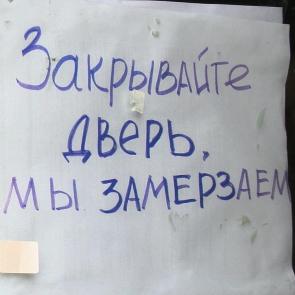 Закрывайте
дверь,
мы замерзаем